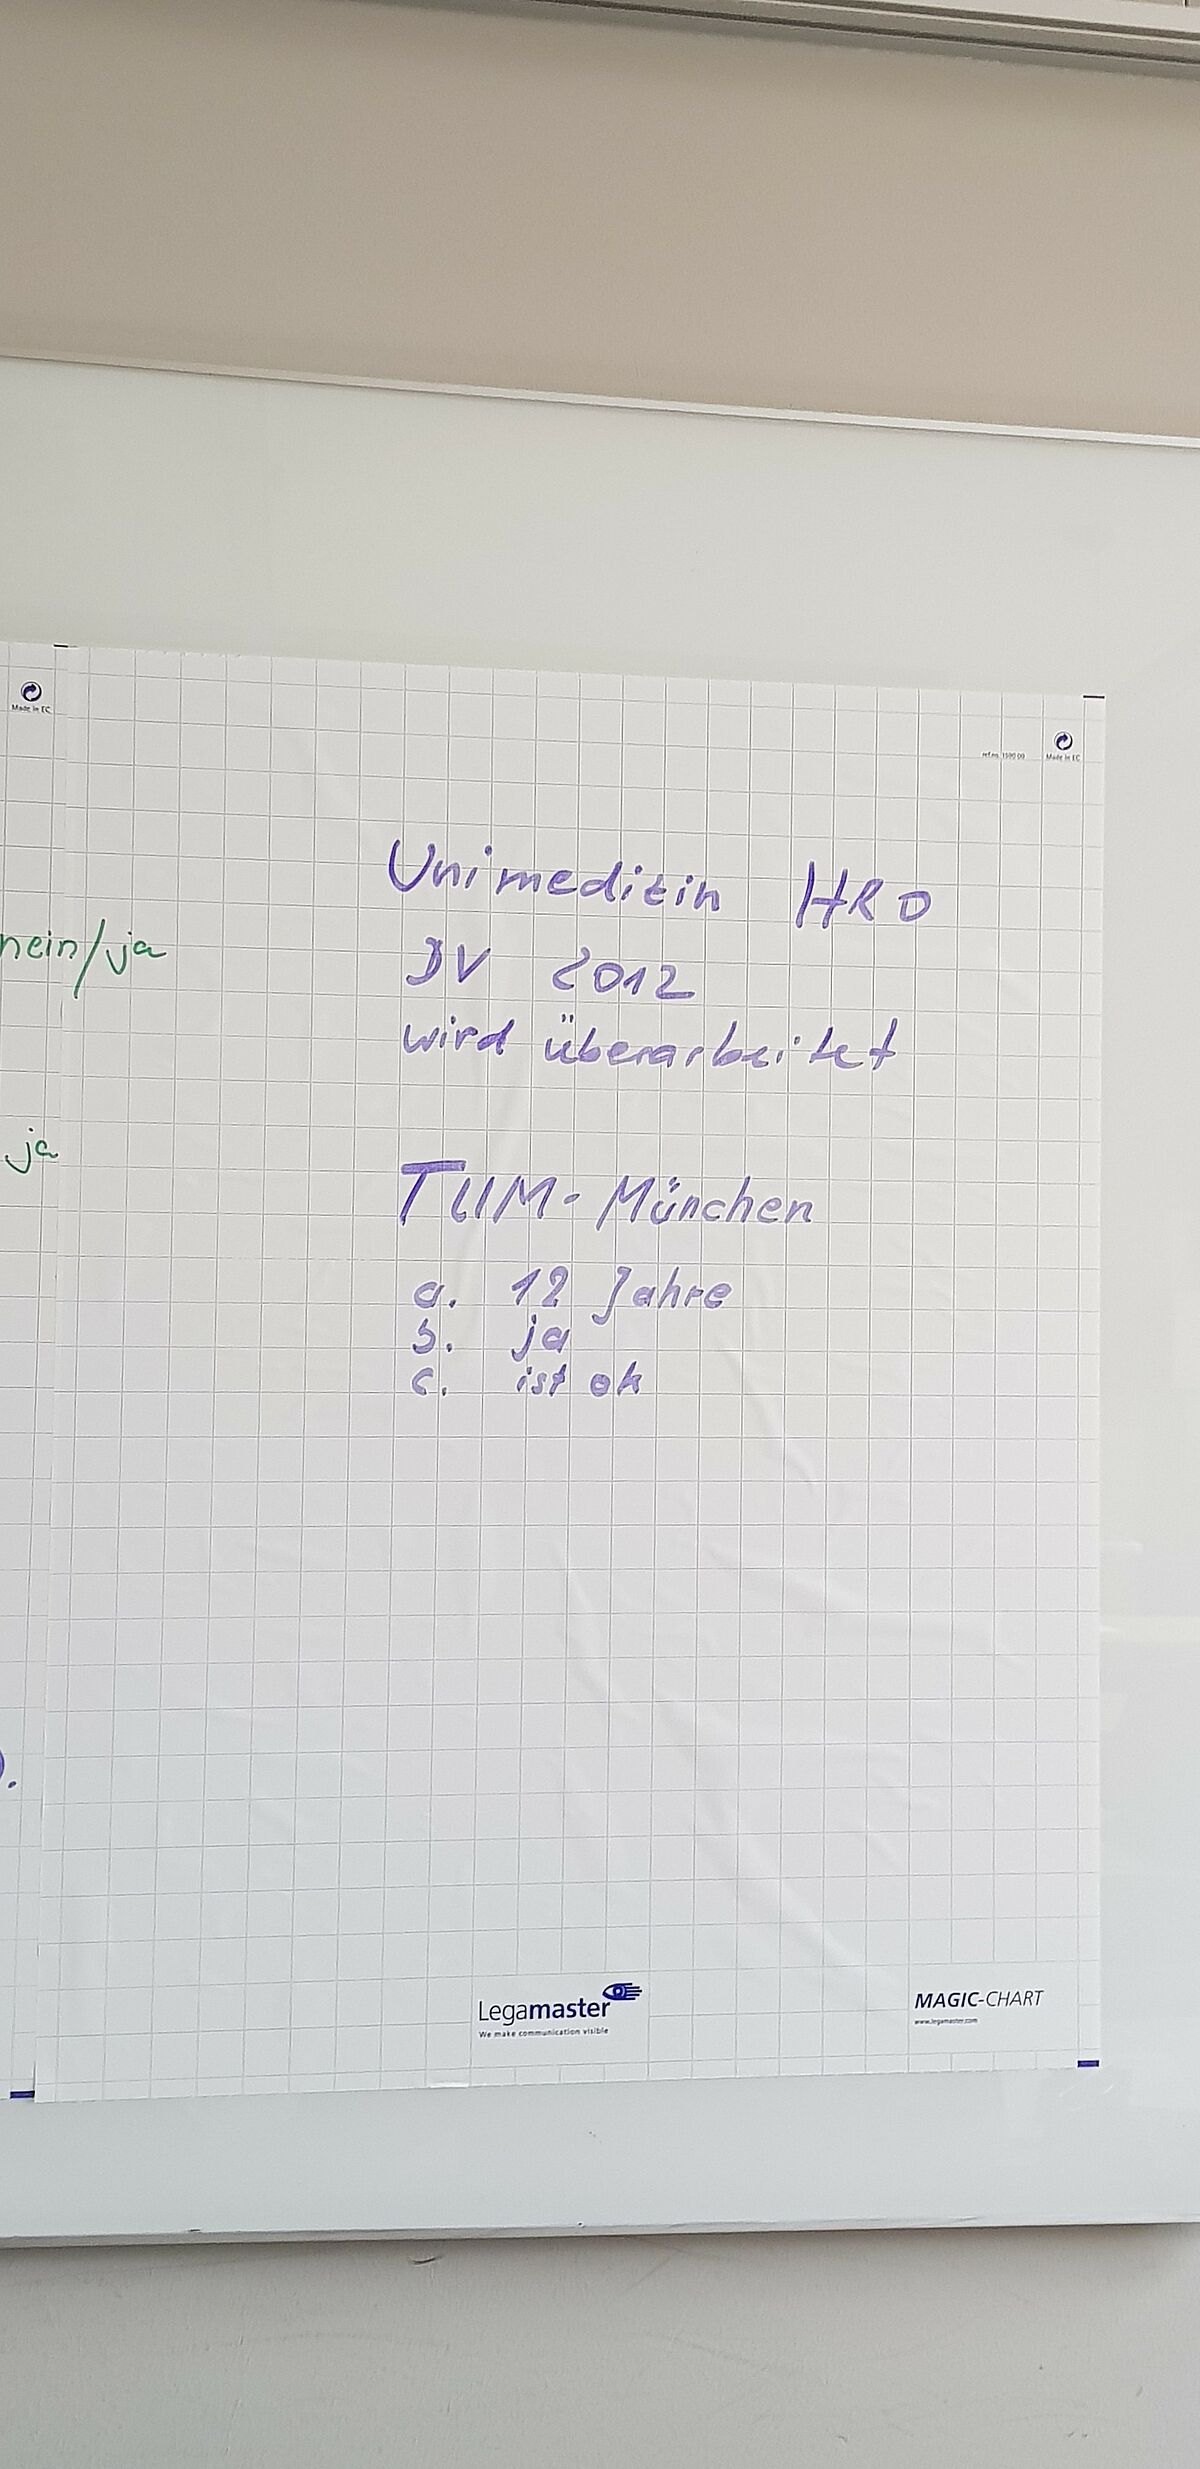 Made in EC
ref.no. 1590 00
Made in EC
nein/ja
ja
Unimedizin HRO
DV 2012
wird überarbeitet
TUM-München
a. 12 Jahre
b. ja
c. ist ok
).
Legamaster
We make communication visible
MAGIC-CHART
www.legamaster.com